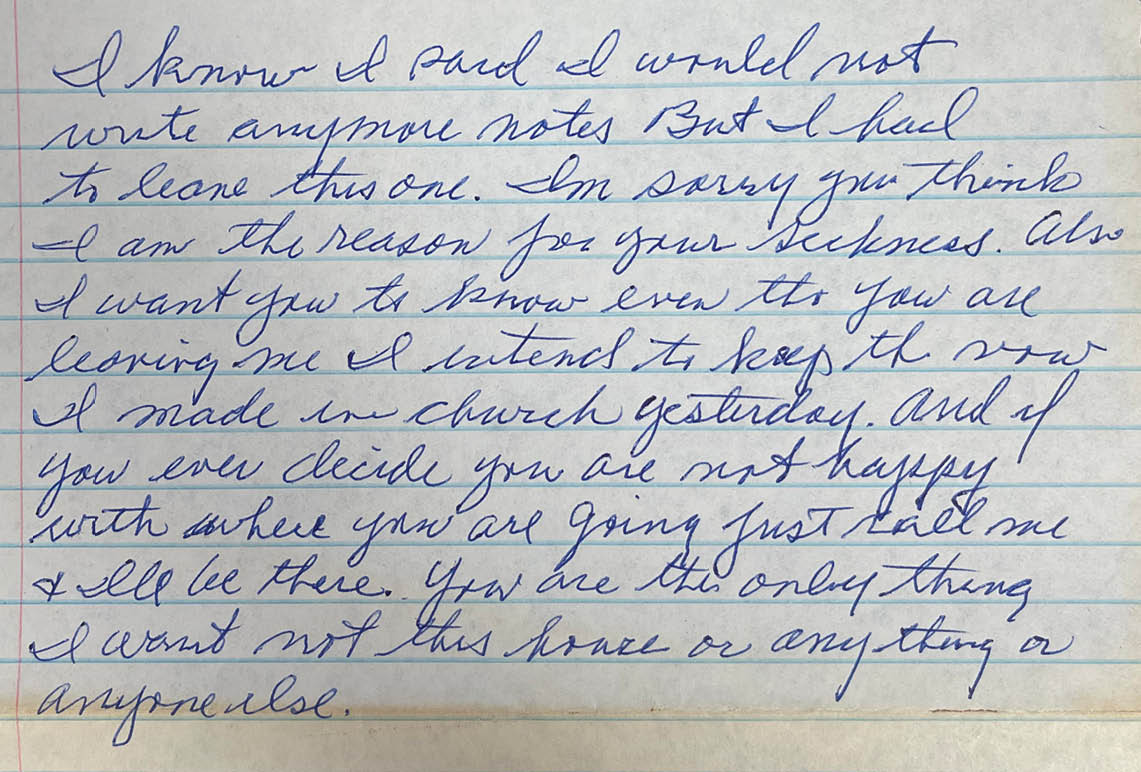 I know I said I would not
write anymore notes But I had
to leave this one. Im sorry you think
I am the reason for your sickness. Also
I want you to know even tho you are
leaving me I intend to keep th vow
I made in church yesterday. And if
you ever decide you are not happy
with where you are going just call me
& Ill be there. You are the only thing
I want not this house or any thing or
anyone else.